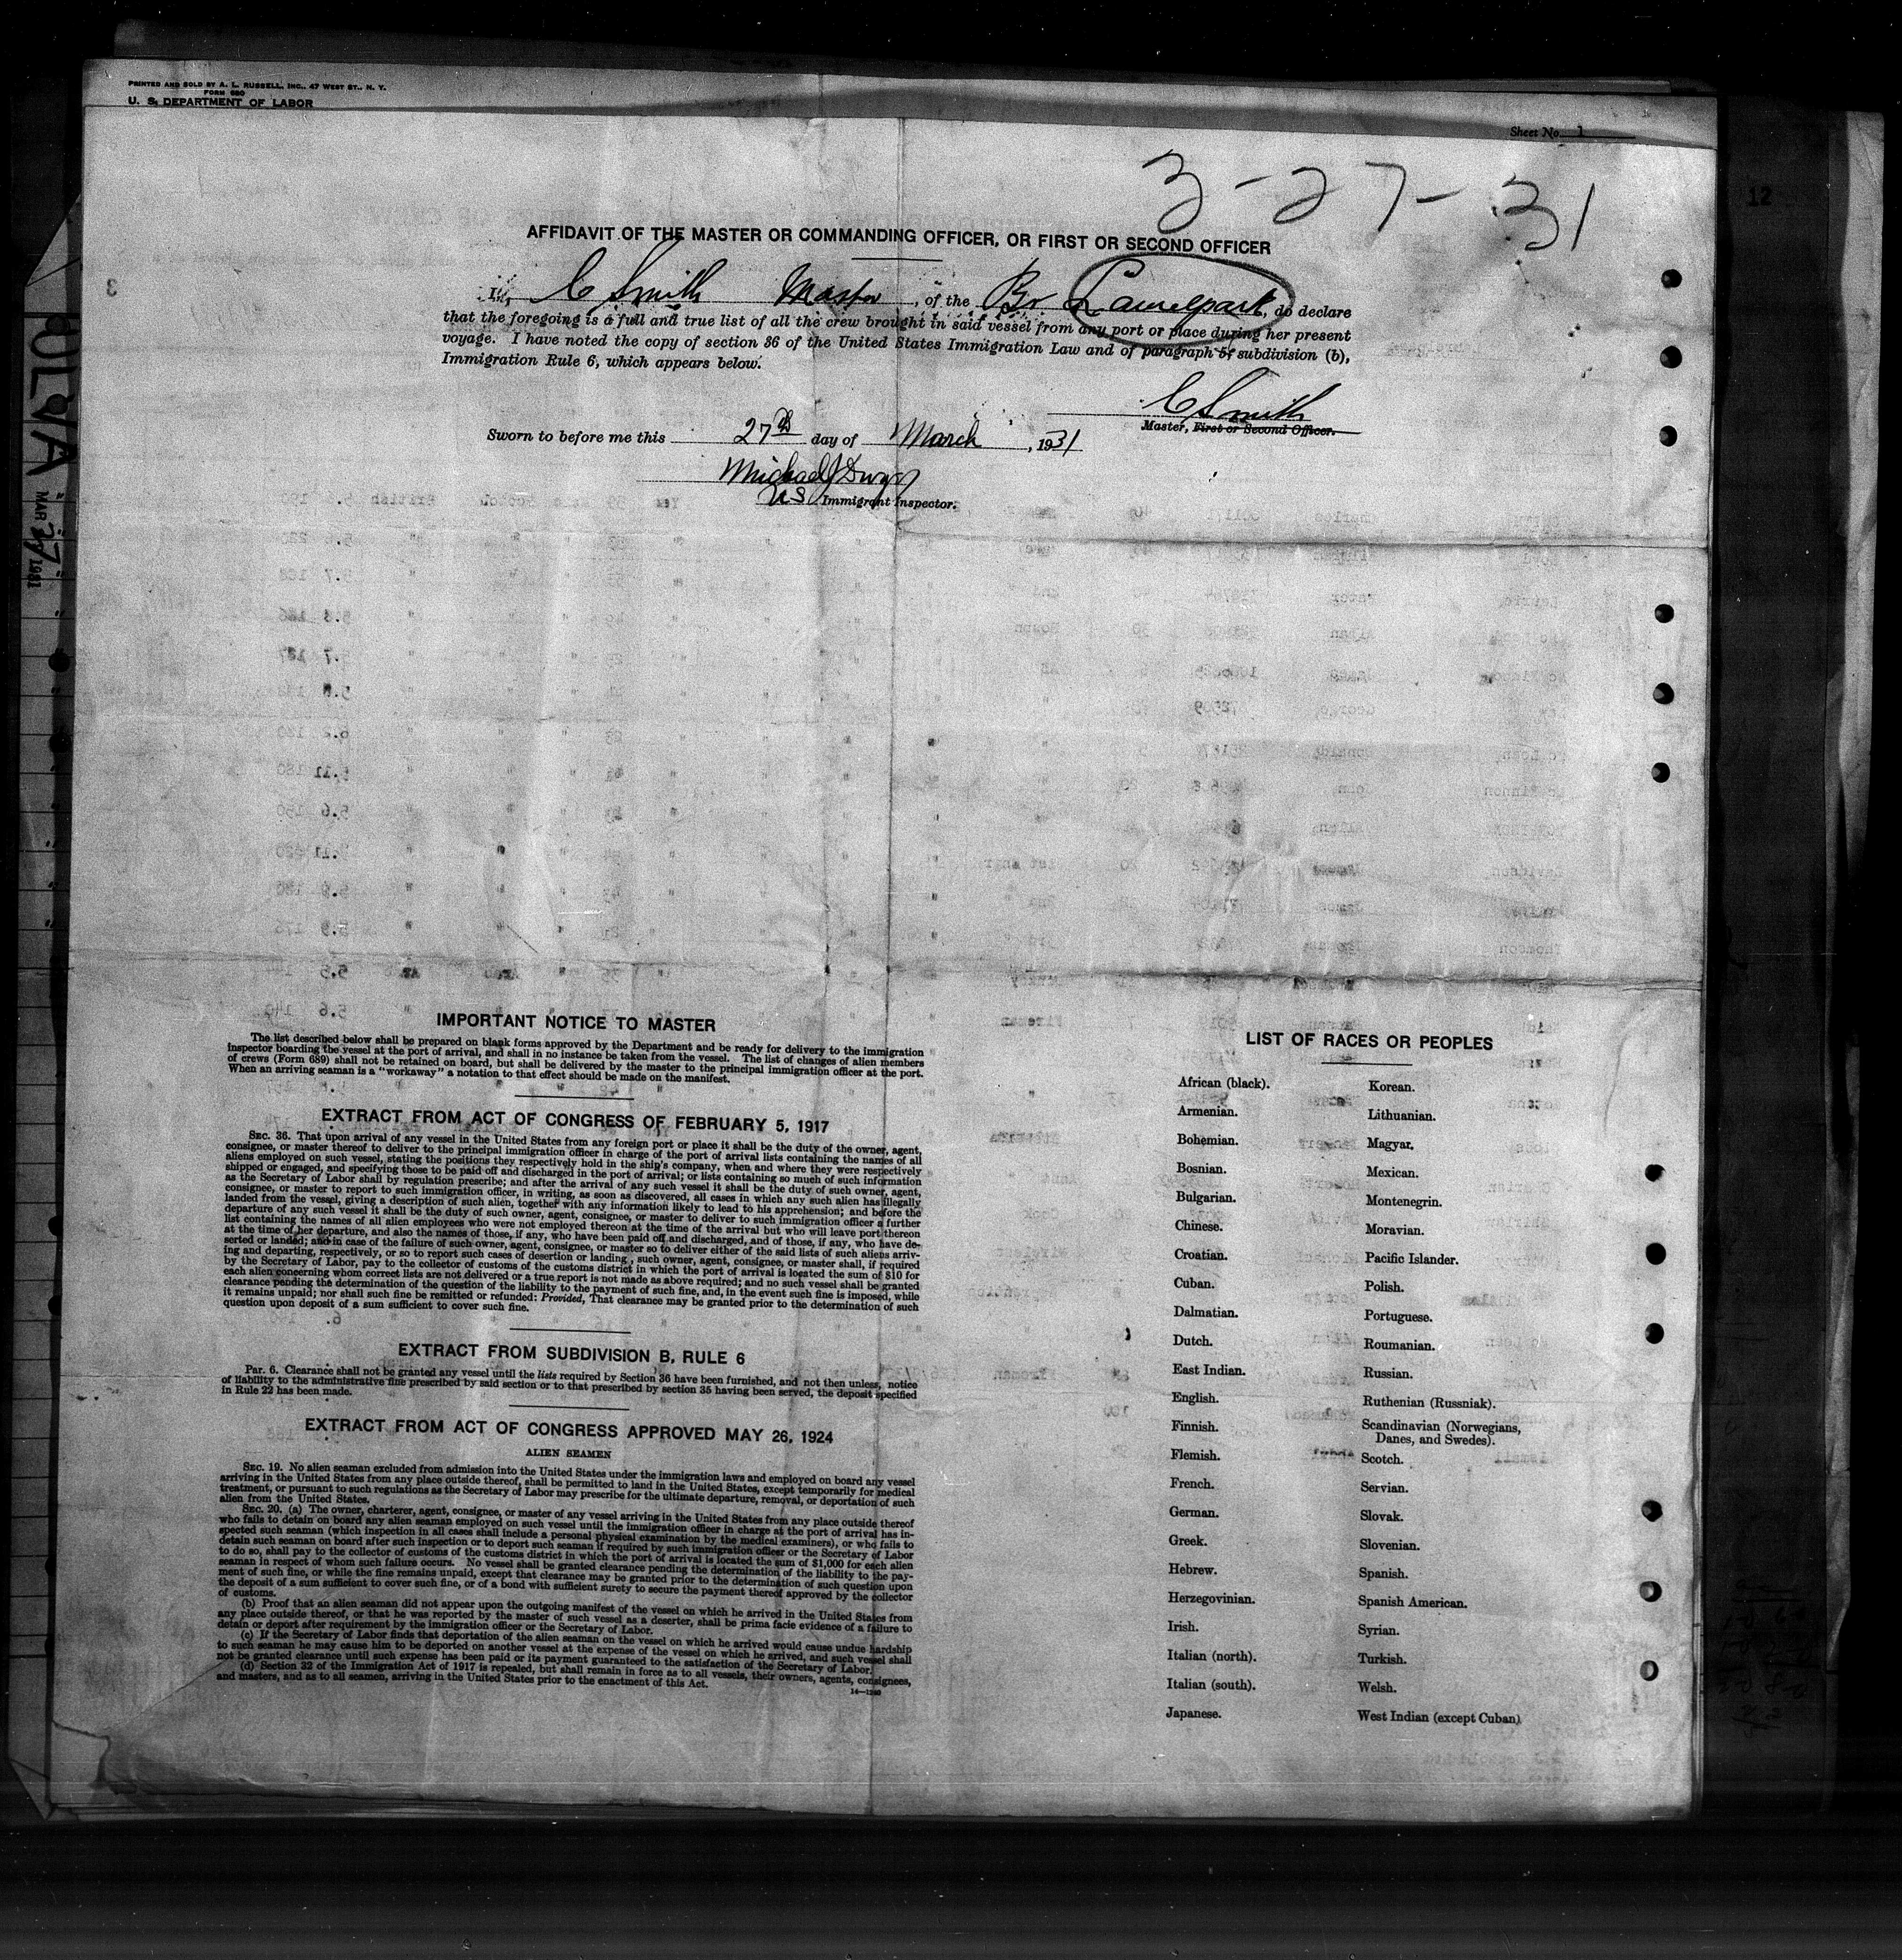 PRINTED AND SOLD BY A. L. RUSSELL, INC., 47 WEST ST., N. Y.
FORM 680
U. S. DEPARTMENT OF LABOR
Sheet No. 1
3-27-31
12
AFFIDAVIT OF THE MASTER OR COMMANDING OFFICER, OR FIRST OR SECOND OFFICER
I, C Smith Master, of the Br Laurelpark, do declare
that the foregoing is a full and true list of all the crew brought in said vessel from any port or place during her present
voyage. I have noted the copy of section 36 of the United States Immigration Law and of paragraph 5, subdivision (b),
Immigration Rule 6, which appears below.
C Smith
Master, First or Second Officer.
Sworn to before me this 27th day of March, 1931
Michael J
US Immigrant Inspector.
MAR 27 1931
IMPORTANT NOTICE TO MASTER
The list described below shall be prepared on blank forms approved by the Department and be ready for delivery to the immigration
inspector boarding the vessel at the port of arrival, and shall in no instance be taken from the vessel. The list of changes of alien members
of crews (Form 689) shall not be retained on board, but shall be delivered by the master to the principal immigration officer at the port.
When an arriving seaman is a "workaway" a notation to that effect should be made on the manifest.
EXTRACT FROM ACT OF CONGRESS OF FEBRUARY 5, 1917
SEC. 36. That upon arrival of any vessel in the United States from any foreign port or place it shall be the duty of the owner, agent,
consignee, or master thereof to deliver to the principal immigration officer in charge of the port of arrival lists containing the names of all
aliens employed on such vessel, stating the positions they respectively hold in the ship's company, when and where they were respectively
shipped or engaged, and specifying those to be paid off and discharged in the port of arrival; or lists containing so much of such information
as the Secretary of Labor shall by regulation prescribe; and after the arrival of any such vessel it shall be the duty of such owner, agent,
consignee, or master to report to such immigration officer, in writing, as soon as discovered, all cases in which any such alien has illegally
landed from the vessel, giving a description of such alien, together with any information likely to lead to his apprehension; and before the
departure of any such vessel it shall be the duty of such owner, agent, consignee, or master to deliver to such immigration officer a further
list containing the names of all alien employees who were not employed thereon at the time of the arrival but who will leave port thereon
at the time of her departure, and also the names of those, if any, who have been paid off and discharged, and of those, if any, who have de-
serted or landed; and in case of the failure of such owner, agent, consignee, or master so to deliver either of the said lists of such aliens arriv-
ing and departing, respectively, or so to report such cases of desertion or landing, such owner, agent, consignee, or master, shall, if required
by the Secretary of Labor, pay to the collector of customs of the customs district in which the port of arrival is located the sum of $10 for
each alien concerning whom correct lists are not delivered or a true report is not made as above required; and no such vessel shall be granted
clearance pending the determination of the question of the liability to the payment of such fine, and, in the event such fine is imposed, while
it remains unpaid; nor shall such fine be remitted or refunded: Provided, That clearance may be granted prior to the determination of such
question upon deposit of a sum sufficient to cover such fine.
EXTRACT FROM SUBDIVISION B, RULE 6
Par. 6. Clearance shall not be granted any vessel until the lists required by Section 36 have been furnished, and not then unless, notice
of liability to the administrative fine prescribed by said section or to that prescribed by section 35 having been served, the deposit specified
in Rule 22 has been made.
EXTRACT FROM ACT OF CONGRESS APPROVED MAY 26, 1924
ALIEN SEAMEN
SEC. 19. No alien seaman excluded from admission into the United States under the immigration laws and employed on board any vessel
arriving in the United States from any place outside thereof, shall be permitted to land in the United States, except temporarily for medical
treatment, or pursuant to such regulations as the Secretary of Labor may prescribe for the ultimate departure, removal, or deportation of such
alien from the United States.
SEC. 20. (a) The owner, charterer, agent, consignee, or master of any vessel arriving in the United States from any place outside thereof
who fails to detain on board any alien seaman employed on such vessel until the immigration officer in charge at the port of arrival has in-
spected such seaman (which inspection in all cases shall include a personal physical examination by the medical examiners), or who fails to
detain such seaman on board after such inspection or to deport such seaman if required by such immigration officer or the Secretary of Labor
to do so, shall pay to the collector of customs of the customs district in which the port of arrival is located the sum of $1,000 for each alien
seaman in respect of whom such failure occurs. No vessel shall be granted clearance pending the determination of the liability to the pay-
ment of such fine, or while the fine remains unpaid, except that clearance may be granted prior to the determination of such question upon
the deposit of a sum sufficient to cover such fine, or of a bond with sufficient surety to secure the payment thereof approved by the collector
of customs.
(b) Proof that an alien seaman did not appear upon the outgoing manifest of the vessel on which he arrived in the United States from
any place outside thereof, or that he was reported by the master of such vessel as a deserter, shall be prima facie evidence of a failure to
detain or deport after requirement by the immigration officer or the Secretary of Labor.
(c) If the Secretary of Labor finds that deportation of the alien seaman on the vessel on which he arrived would cause undue hardship
to such seaman he may cause him to be deported on another vessel at the expense of the vessel on which he arrived, and such vessel shall
not be granted clearance until such expense has been paid or its payment guaranteed to the satisfaction of the Secretary of Labor.
(d) Section 32 of the Immigration Act of 1917 is repealed, but shall remain in force as to all vessels, their owners, agents, consignees,
and masters, and as to all seamen, arriving in the United States prior to the enactment of this Act.
14—1240
LIST OF RACES OR PEOPLES
African (black).
Armenian.
Bohemian.
Bosnian.
Bulgarian.
Chinese.
Croatian.
Cuban.
Dalmatian.
Dutch.
East Indian.
English.
Finnish.
Flemish.
French.
German.
Greek.
Hebrew.
Herzegovinian.
Irish.
Italian (north).
Italian (south).
Japanese.
Korean.
Lithuanian.
Magyar.
Mexican.
Montenegrin.
Moravian.
Pacific Islander.
Polish.
Portuguese.
Roumanian.
Russian.
Ruthenian (Russniak).
Scandinavian (Norwegians,
Danes, and Swedes).
Scotch.
Servian.
Slovak.
Slovenian.
Spanish.
Spanish American.
Syrian.
Turkish.
Welsh.
West Indian (except Cuban)